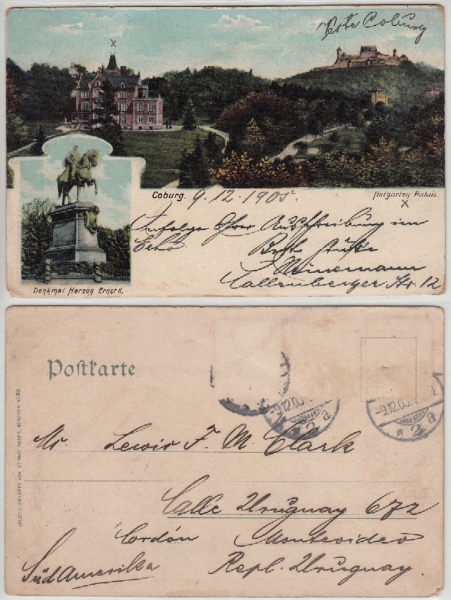 Veste Coburg
Coburg. 9.12.1905.
Hofgarten Palais.
x
Infolge Ihrer Ausschreibung im
Echo Best Grüße
Heinemann
Callenberger Str. 12
Denkmal Herzog Ernst II.
Postkarte
-9.12.05.
* 2a
-9.12.05.
* 2a
Mr. Lewis F. M. Clark
Calle Uruguay 672
Cordón Montevideo
Süd Amerika Repl. Uruguay.